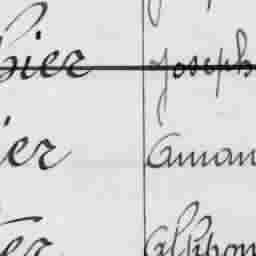 bier Joseph
ier Aman
er Alphon